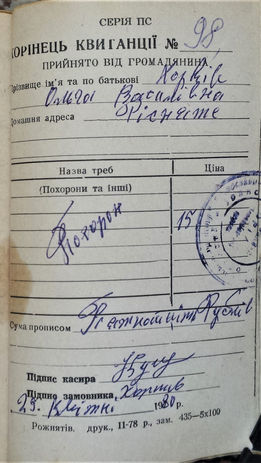 СЕРІЯ ПС
КОРІНЕЦЬ КВИТАНЦІЇ № 98
ПРИЙНЯТО ВІД ГРОМАДЯНИНА
Прізвище ім'я та по батькові
Ольга Василівна
Домашня адреса Ріп'яте
Назва треб Ціна
(Похорони та інші)
Похорон 15
Сума прописом П'ятнадцять Рублів
Підпис касира
Підпис замовника
29. Квітня 1980 р.
Рожнятів. друк., 11-78 р., зам. 435—5х100